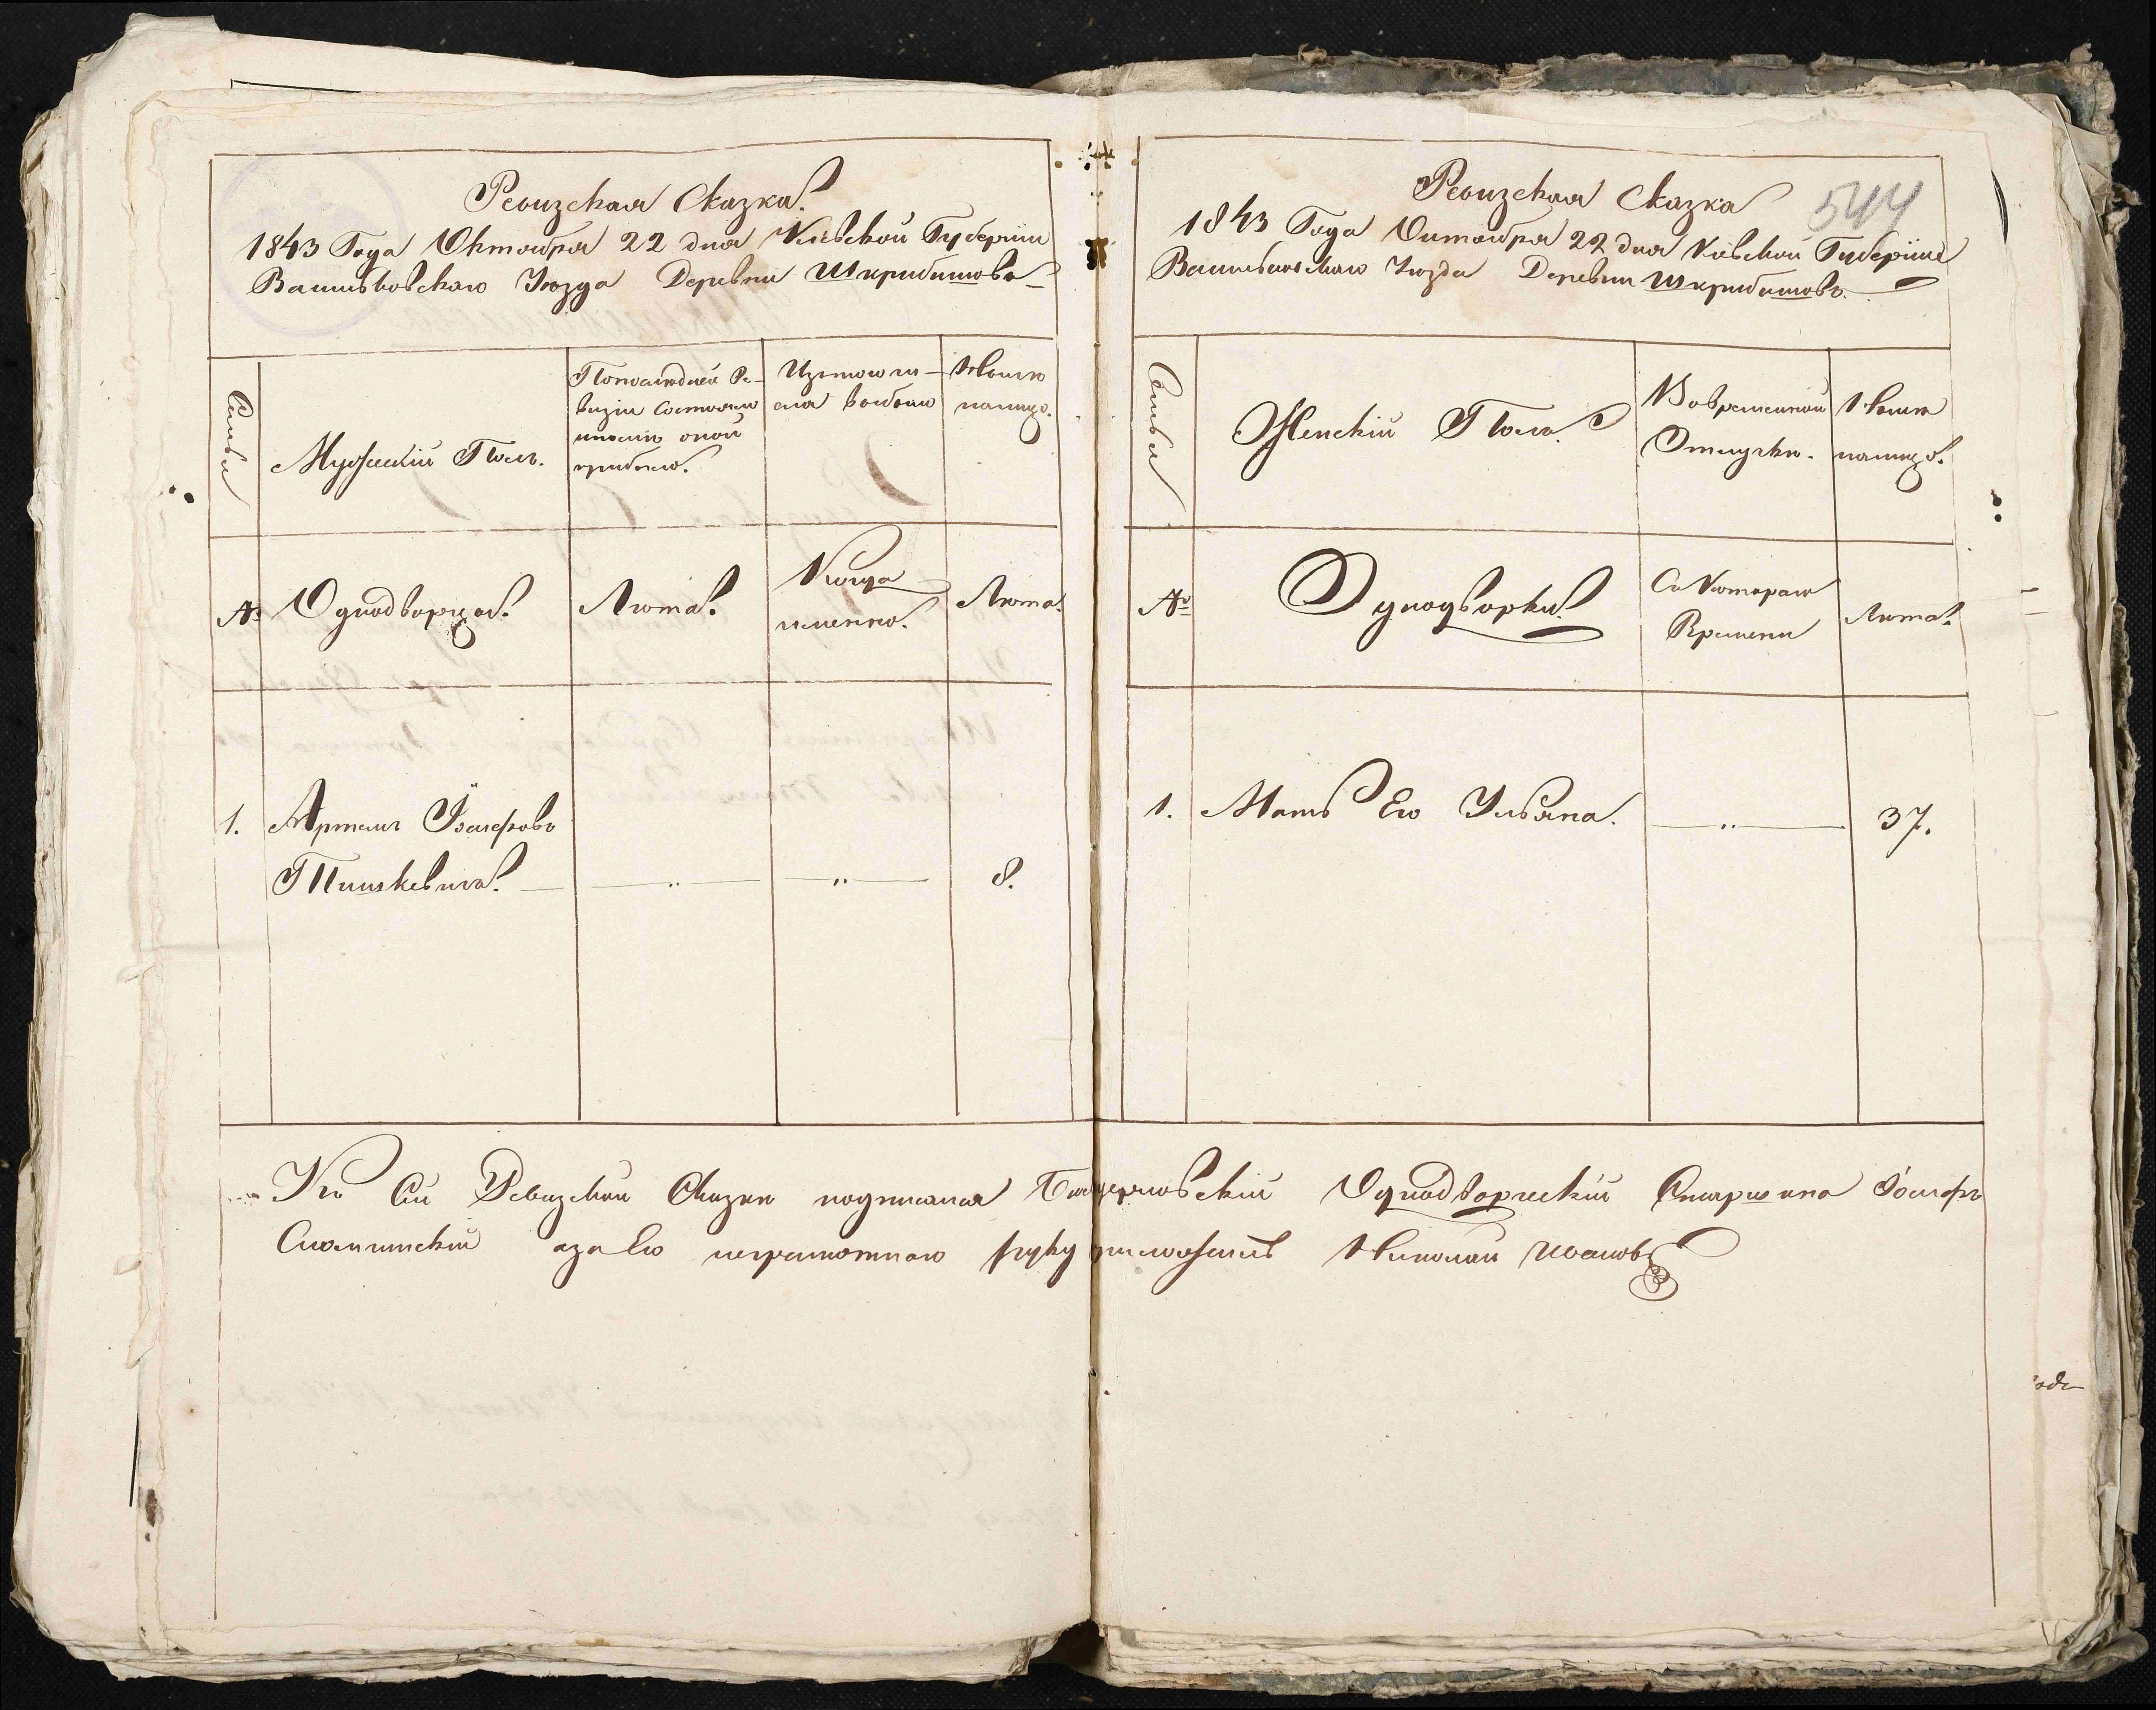 Ревизская Сказка
1843 Года Октября 22 дня Кіевской Губерніи
Васильковскаго Уѣзда Деревни Шкрибишовъ
Семьи
Мужескій Полъ.
По последней Ре-
визіи состояло
и после оной
прибыло.
Изтого чи-
сла выбыло
Ныне
налицо.
№
Однодворцы.
Лѣта.
Когда
именно.
Лѣта.
1. Артемъ Іосифовъ
8.
Ревизская Сказка
544
1843 Года Октября 22 дня Кіевской Губерніи
Васильковскаго Уѣзда Деревни Шкрибишовъ
Семьи
Женскій Полъ.
Вовременной
Отлучкѣ.
Ныне
налицо.
№
Однодворки.
Съ Котораго
Времени
Лѣта.
1. Мать Его Ульяна. 37.
Къ Сей Ревизской Сказки подписался Однодворческій Старшина Іосифъ
а за Его неграмотнаго руку приложилъ Николай Ивановъ